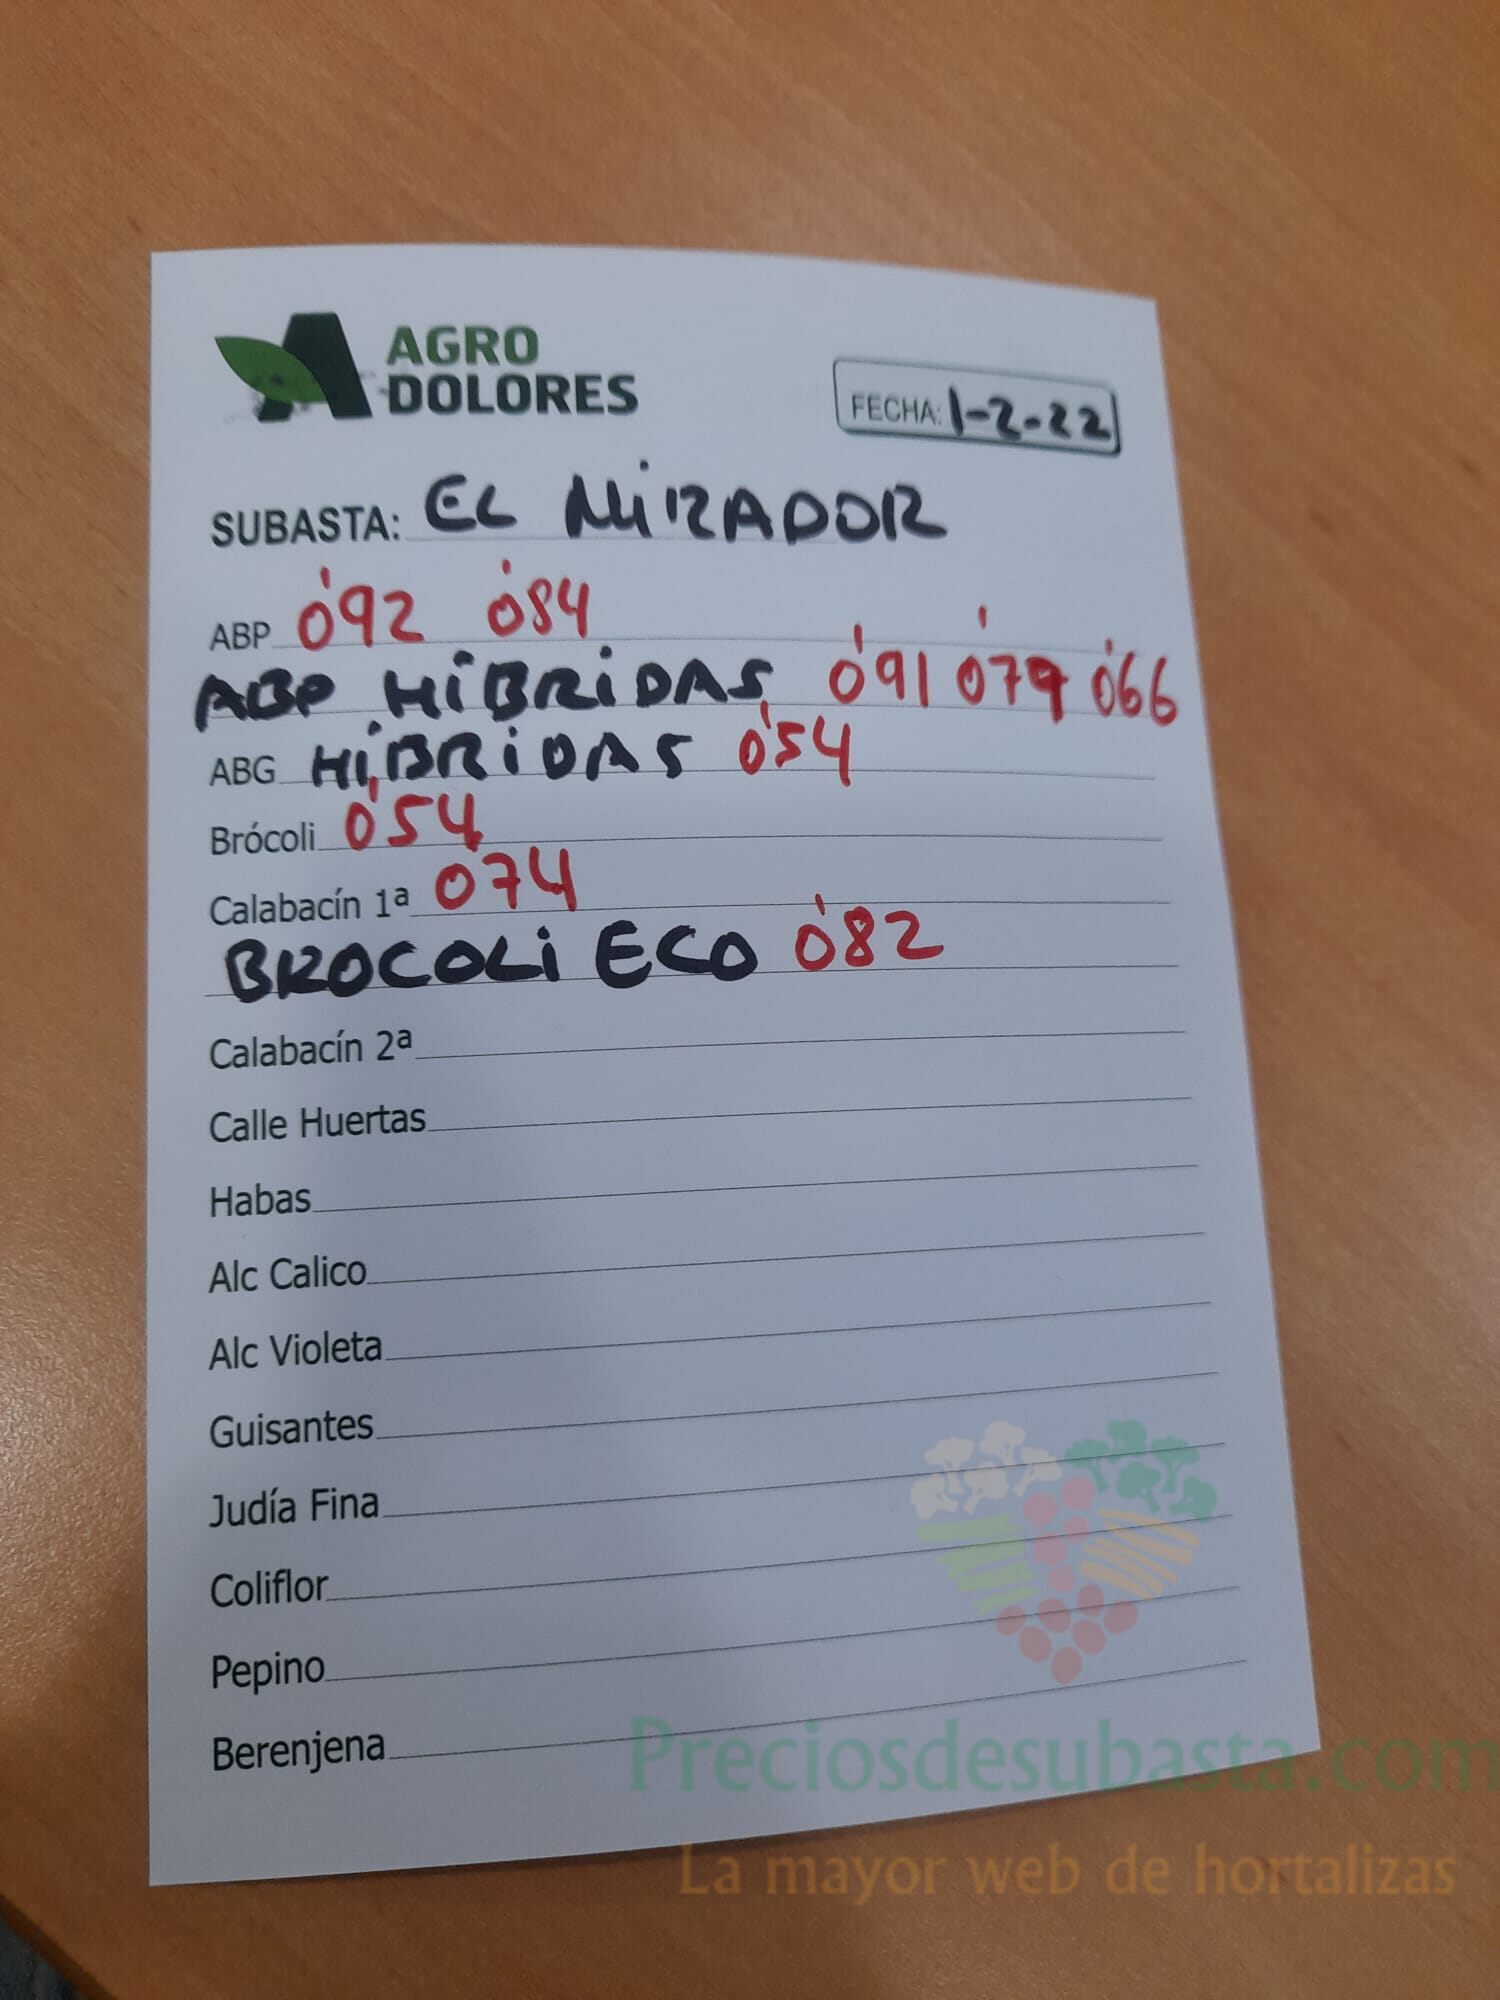 AGRO
DOLORES
FECHA: 1-2-22
SUBASTA: EL MIRADOR
ABP 0'92 0'84
ABP HÍBRIDAS 0'91 0'79 0'66
ABG HÍBRIDAS 0'54
Brócoli 0'54
Calabacín 1ª 0'74
BROCOLI ECO 0'82
Calabacín 2ª
Calle Huertas
Habas
Alc Calico
Alc Violeta
Guisantes
Judía Fina
Coliflor
Pepino
Berenjena
Preciosdesubasta.com
La mayor web de hortalizas